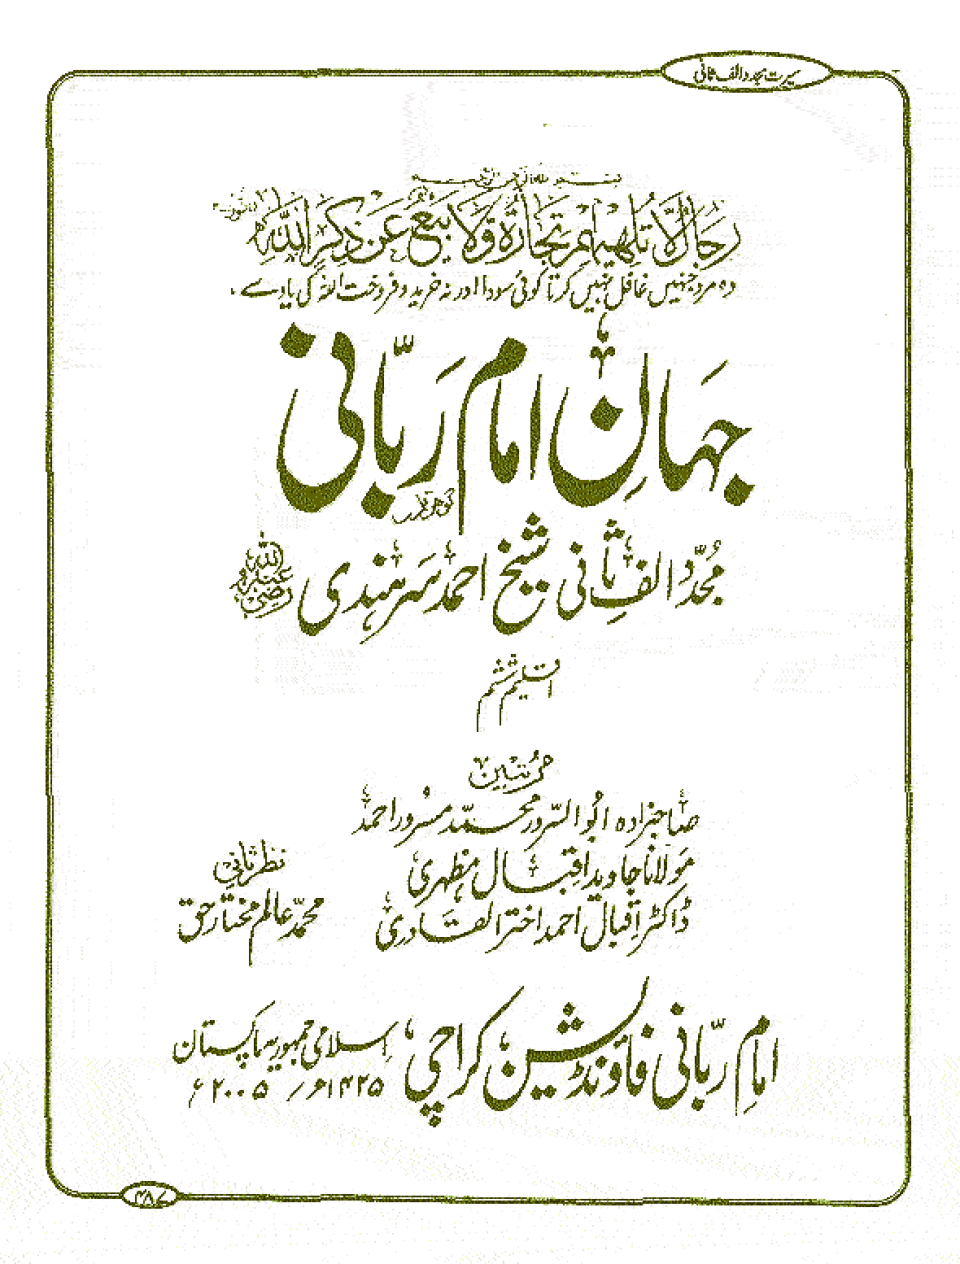 سیرت مجدد الف ثانی
رِجَالٌ لَّا تُلْهِيهِمْ تِجَارَةٌ وَّلَا بَيْعٌ عَنْ ذِكْرِ اللهِ
وہ مرد جنہیں غافل نہیں کرتا کوئی سودا اور نہ خرید و فروخت اللہ کی یاد سے۔
جہانِ امام رَبّانی
مُجدّد الفِ ثانی شیخ احمد سَرہندی رضی اللہ عنہ
اقلیم ششم
مُرتبین
صاحبزادہ ابُوالسّرور محمّد مسرُور احمد
مَولانا جاوید اقبال مظہری
نظر ثانی
ڈاکٹر اقبال احمد اختر القادری
محمّد عالم مختار حق
امام ربّانی فاؤنڈیشن کراچی
اسلامی جمہوریہ پاکستان
۱۴۲۵ء / ۲۰۰۵ء